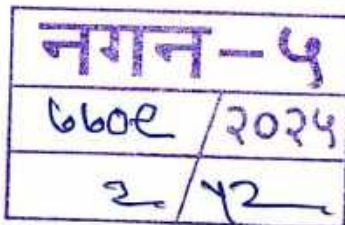 नगन-५
७७०९/२०२५
२/५२